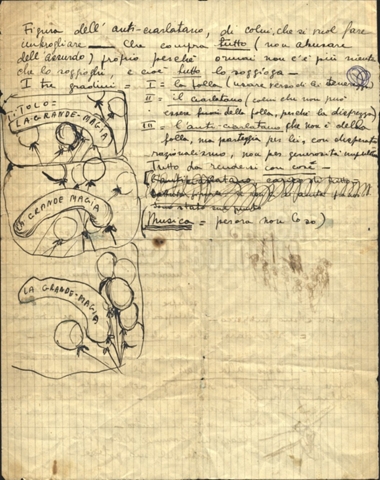 Figura dell' anti-ciarlatano, di colui che si vuol fare
imbrogliare — Che compra tutto (non abusare
dell'assurdo) proprio perché ormai non c'è più niente
che lo soggioghi, e cioè tutto lo soggioga —
I tre gradini = I = la folla
II = il ciarlatano (colui che non può
essere fuori della folla, perché la disprezza)
III = l'anti-ciarlatano che non è della
folla, ma parteggia per lei, con disperato
razionalismo, non per generosità
Tutto da rendersi con
Musica = persona non lo so)
TITOLO:
LA-GRANDE-MAGIA
LA GRANDE MAGIA
LA GRANDE-MAGIA